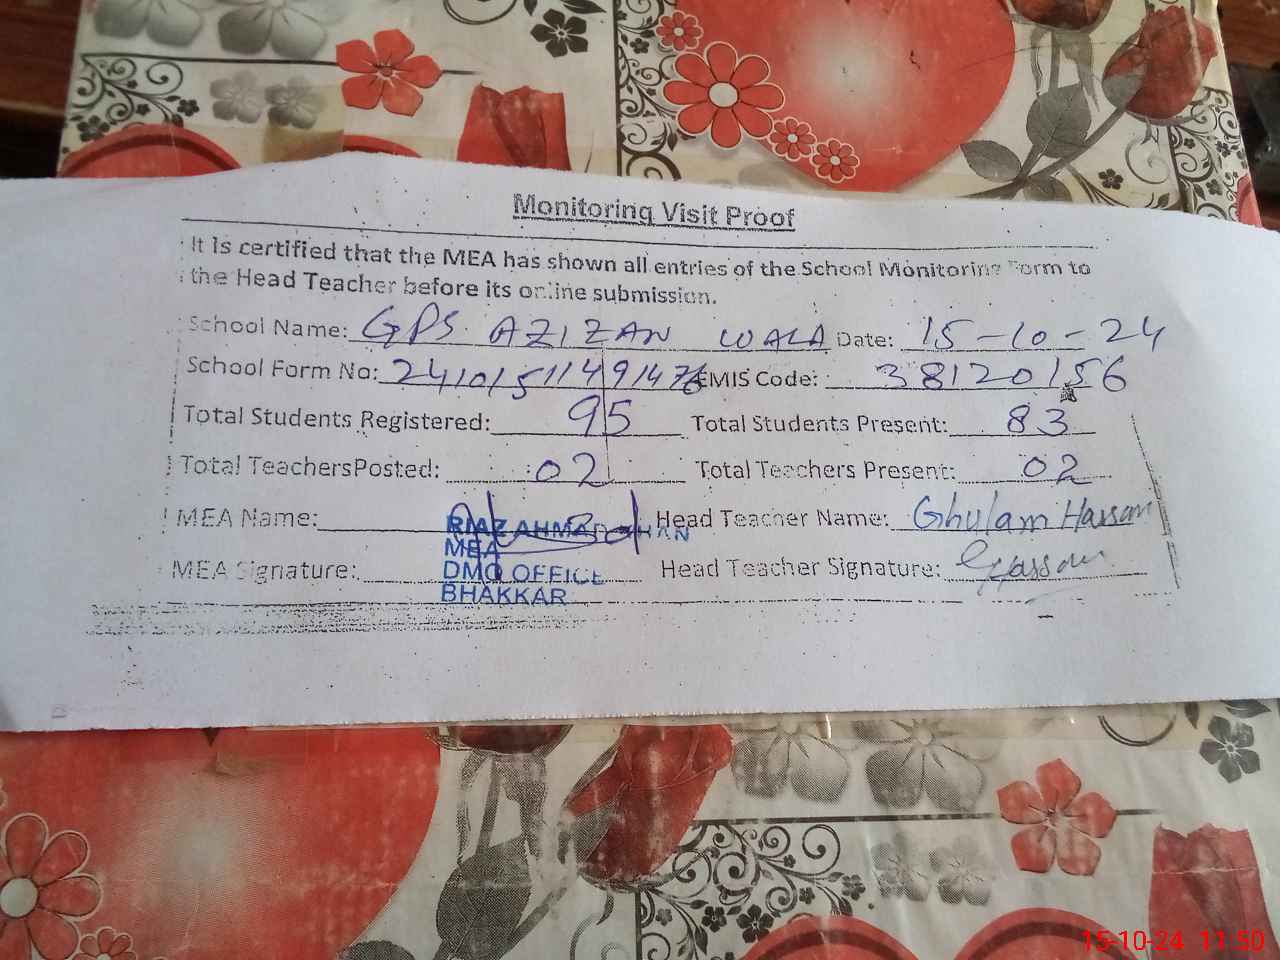 Monitoring Visit Proof
It is certified that the MEA has shown all entries of the School Monitoring Form to
the Head Teacher before its online submission.
School Name: GPS. AZIZAN WALA Date: 15-10-24
School Form No: 24101511491476 EMIS Code: 38120156
Total Students Registered: 95 Total Students Present: 83
Total TeachersPosted: 02 Total Teachers Present: 02
MEA Name: RIAZ AHMAD KHAN Head Teacher Name: Ghulam Hassan
MEA
MEA Signature: DMO OFFICE Head Teacher Signature: GHassan
BHAKKAR
15-10-24 11:50